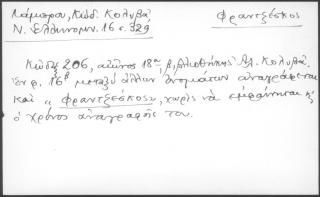 Λάμπρου, Κώδ. Κολυβᾶ
Ν. Ἑλληνομν. 16 σ. 329
Φραντζέσκος
Κώδηξ 206, αἰῶνος 18ου, βιβλιοθήκης Ἀλ. Κολυβᾶ.
Ἐν φ. 16β μεταξὺ ἄλλων ὀνομάτων ἀναγράφεται
καὶ « Φραντζέσκος», χωρὶς νὰ ἐμφαίνηται κ'
ὁ χρόνος ἀναγραφῆς του.